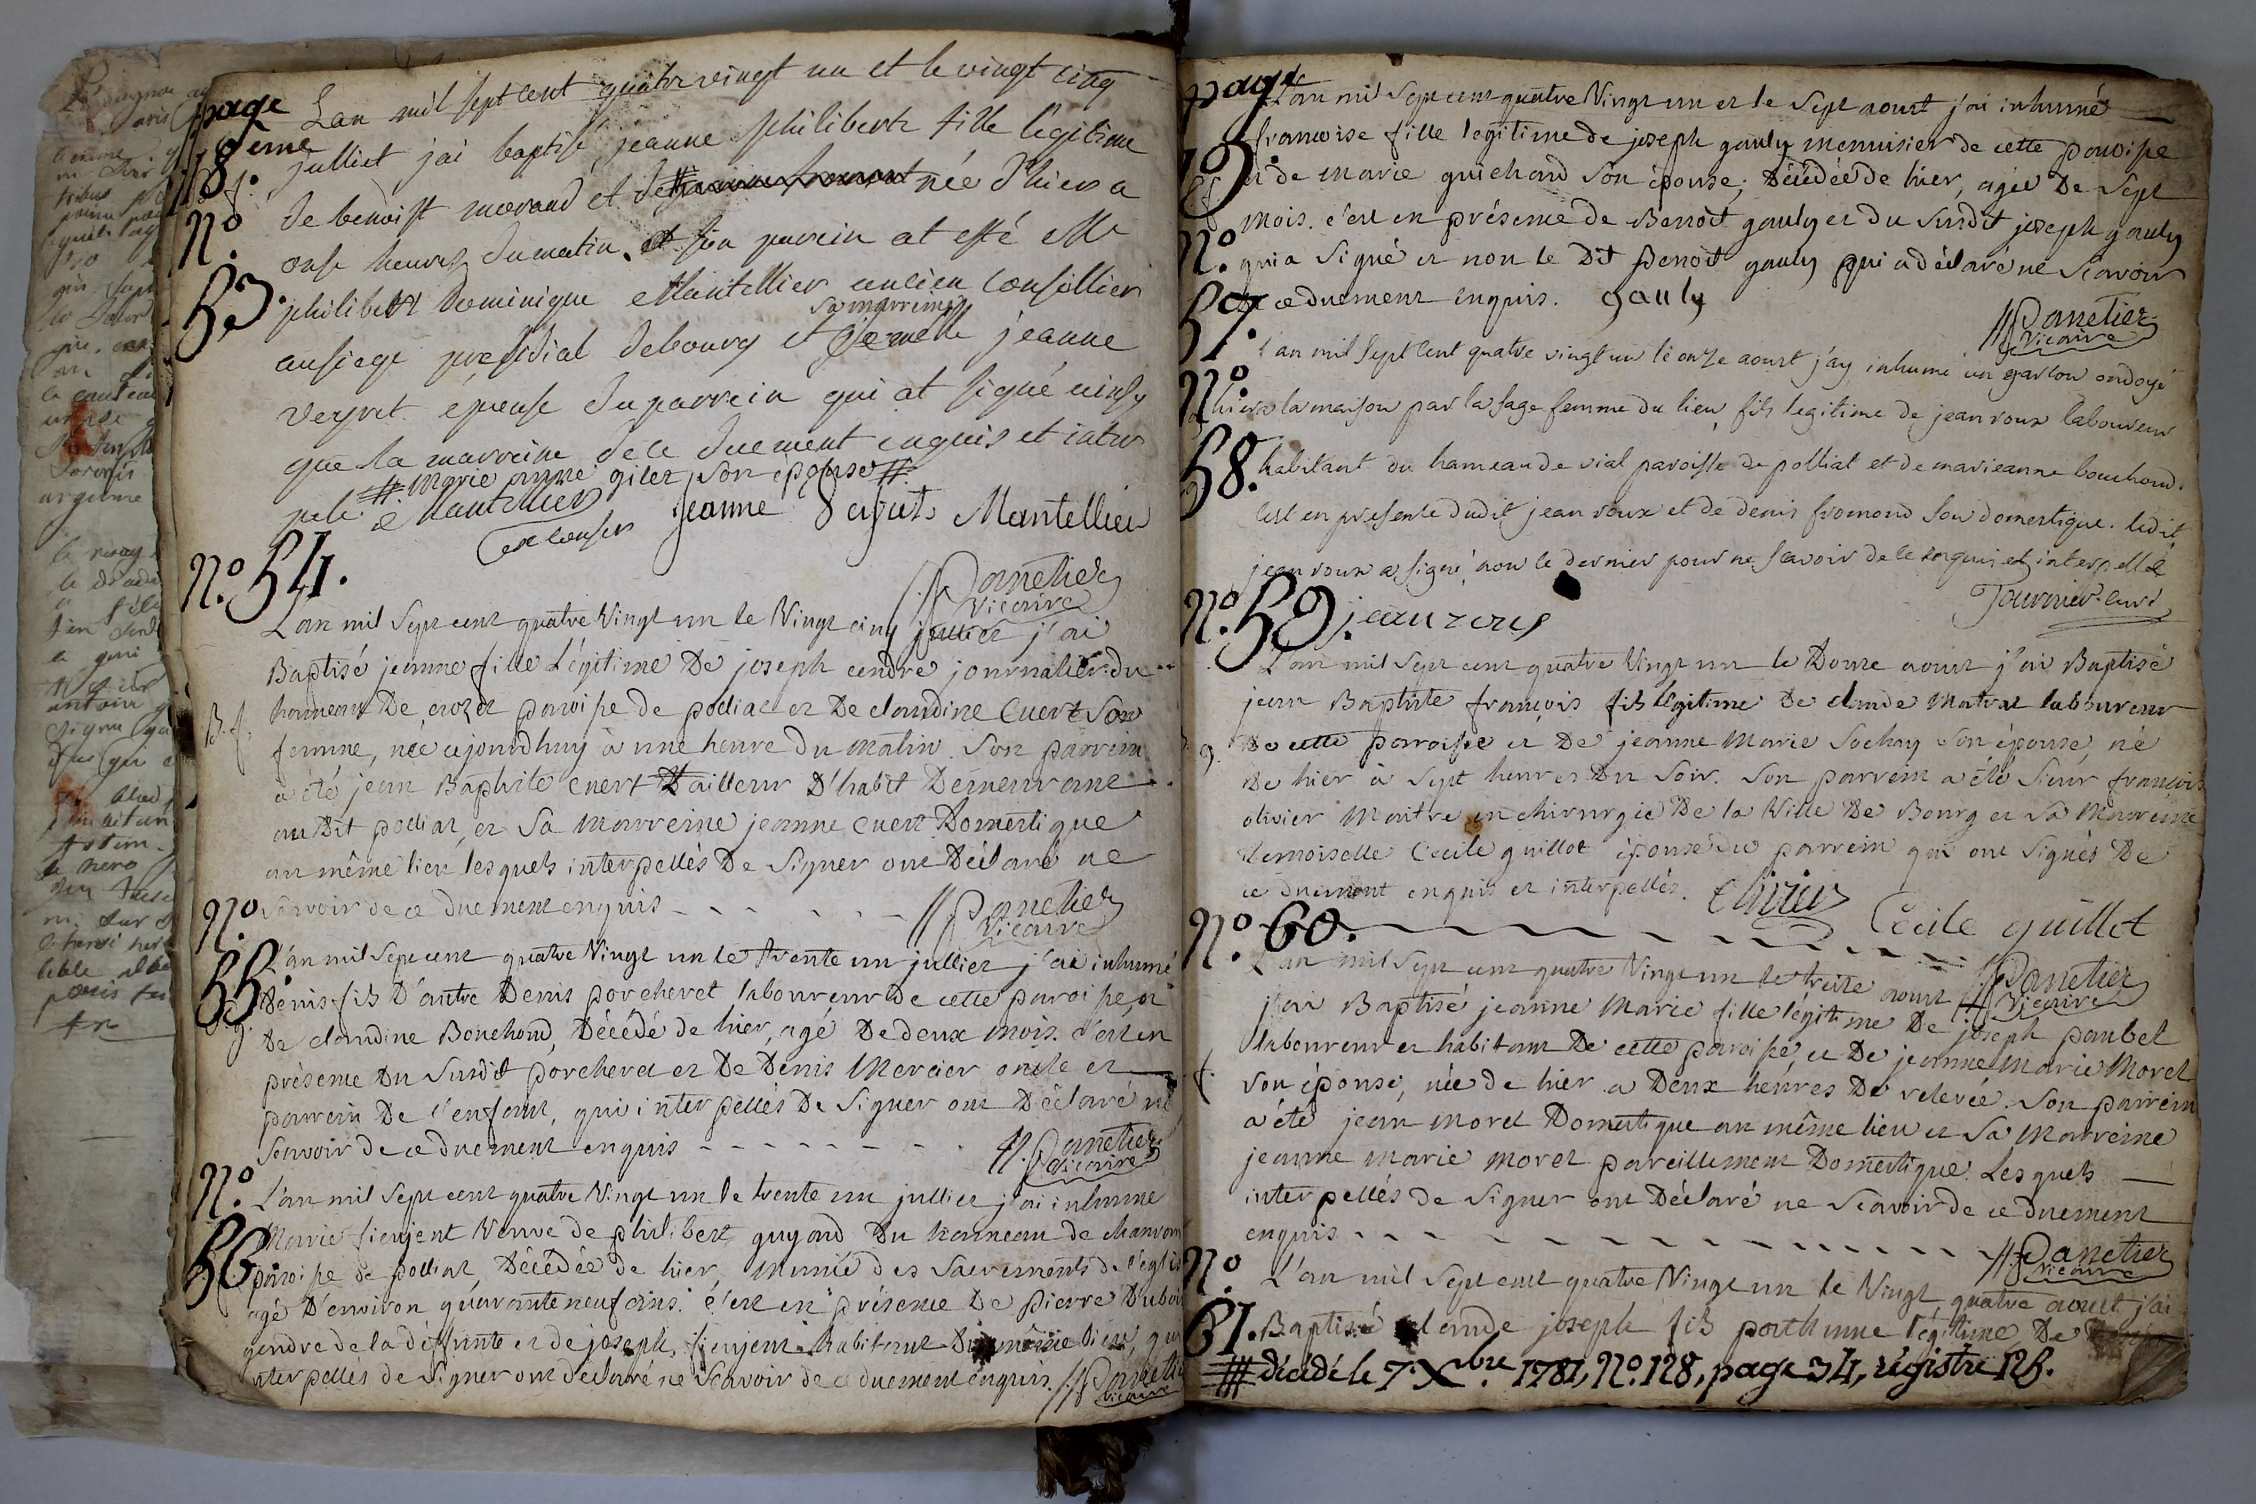 page
18eme
Lan mil sept cent quatre vingt un et le vingt cinq
julliet jai baptisé jeanne philiberte fille legitime
de benoist morand et de née d'hier a
onse heures du matin, son parein at esté Mr
philibert Dominique Mantellier ancien Conseillier
au siege presidial debourg et sa marreine Demelle jeanne
veyret épouse du parrein qui at signé ainsy
que la marreine de ce duement enquis et inter
pelé # marie anne gilet son épouse #
Mantellier Jeanne Mantellier
No. 53.
B. f.
Panetier
Vicaire
No. 54.
L'an mil Sept cent quatre Vingt un le Vingt cinq juillet j'ai
Baptisé jeanne fille Légitime De joseph cendre journalier du
hameau De crozet paroisse de polliat et De claudine Cuert Son
B. f.
femme, née ajourdhuy à une heure du Matin. Son parrein
a été jean Baptiste cuert Tailleur D'habit Demeurant
au Dit polliat, et Sa Marreine jeanne Cuert Domestique
au même lieu lesquels interpellés De Signer ont Déclaré ne
Scavoir de ce duement enquis - - - - - - Panetier
Vicaire
No. 55.
L'an mil Sept cent quatre Vingt un le trente un julliet j'ai inhumé
Denis fils D'autre Denis porcheret laboureur de cette paroisse, et
De claudine Bouchond, Décédé de hier, agé De deux Mois. c'est en
présence Du Susdit porcheret et De Denis Mercier oncle et
parrein De l'enfant, qui interpellés De Signer ont Déclaré ne
Scavoir de ce duement enquis - - - - - - - Panetier
Vicaire
No. 56.
L'an mil Sept cent quatre Vingt un le trente un julliet j'ai inhumé
Marie fienjent Veuve de philibert guyard Du hameau de chanvent
paroisse de polliat, Décédée de hier, Munie des Sacrements de l'eglise
agé D'environ quarante neuf ans. c'est en présence De Pierre Dubois
gendre de la déffunte et de joseph fienjent habitant Du même lieu, qui
interpellés de Signer ont Déclaré ne Scavoir de ce duement enquis. Panetier
Vicaire
page
19.
L'an mil Sept cent quatre Vingt un et le Sept aoust j'ai inhumé
francoise fille legitime de joseph gauly menuisier de cette paroisse
et de Marie guichard Son épouse, Décédée de hier, agée De Sept
Mois. c'est en présence de Benoit gauly et du Susdit joseph gauly
qui a Signé et non le Dit Benoit gauly qui a déclaré ne Scavoir
de ce duement enquis. gauly
No. 57.
Panetier
Vicaire
l'an mil sept cent quatre vingt un le onze aoust j'ay inhumé un garson ondoyé
hier a la maison par la sage femme du lieu, fils legitime de jean roux laboureur
No. 58.
habitant du hameau de vial paroisse de polliat et de marieanne bouchond.
cest en presente dudit jean roux et de denis fromond son domestique. ledit
jean roux a signé, non le dernier pour ne scavoir de ce enquis et interpellé
Tournier curé
No. 59. jean roux
L'an mil Sept cent quatre Vingt un le Douze aoust j'ai Baptisé
jean Baptiste françois fils légitime De claude Matrat laboureur
g.
De cette parroisse et De jeanne Marie Sochay Son épouse, né
De hier à Sept heures Du Soir. Son parrein a été Sieur françois
olivier Maitre en chirurgie De la Ville De Bourg et Sa Marreine
demoiselle Cecile guillot épouse du parrein qui ont Signés De
ce duement enquis et interpellés. Olivier Cecile guillot
No. 60.
Panetier
Vicaire
L'an mil Sept cent quatre Vingt un le treize aoust
j'ai Baptisé jeanne Marie fille légitime De joseph paubet
laboureur et habitant De cette paroisse, et De jeanne Marie Morel
f.
Son épouse, née de hier a Deux heures De relevée. Son parrein
a été jean Morel Domestique au même lieu et Sa Marreine
jeanne Marie Morel pareillement Domestique. Lesquels
interpellés de Signer ont Déclaré ne Scavoir de ce duement
enquis - - - - - - - - - - Panetier
Vicaire
No. 61.
L'an mil Sept cent quatre Vingt un le Vingt quatre aoust j'ai
Baptisé claude joseph fils posthume légitime De
# décédé le 7. Xbre 1781, No. 128, page 34, régistre 12B.